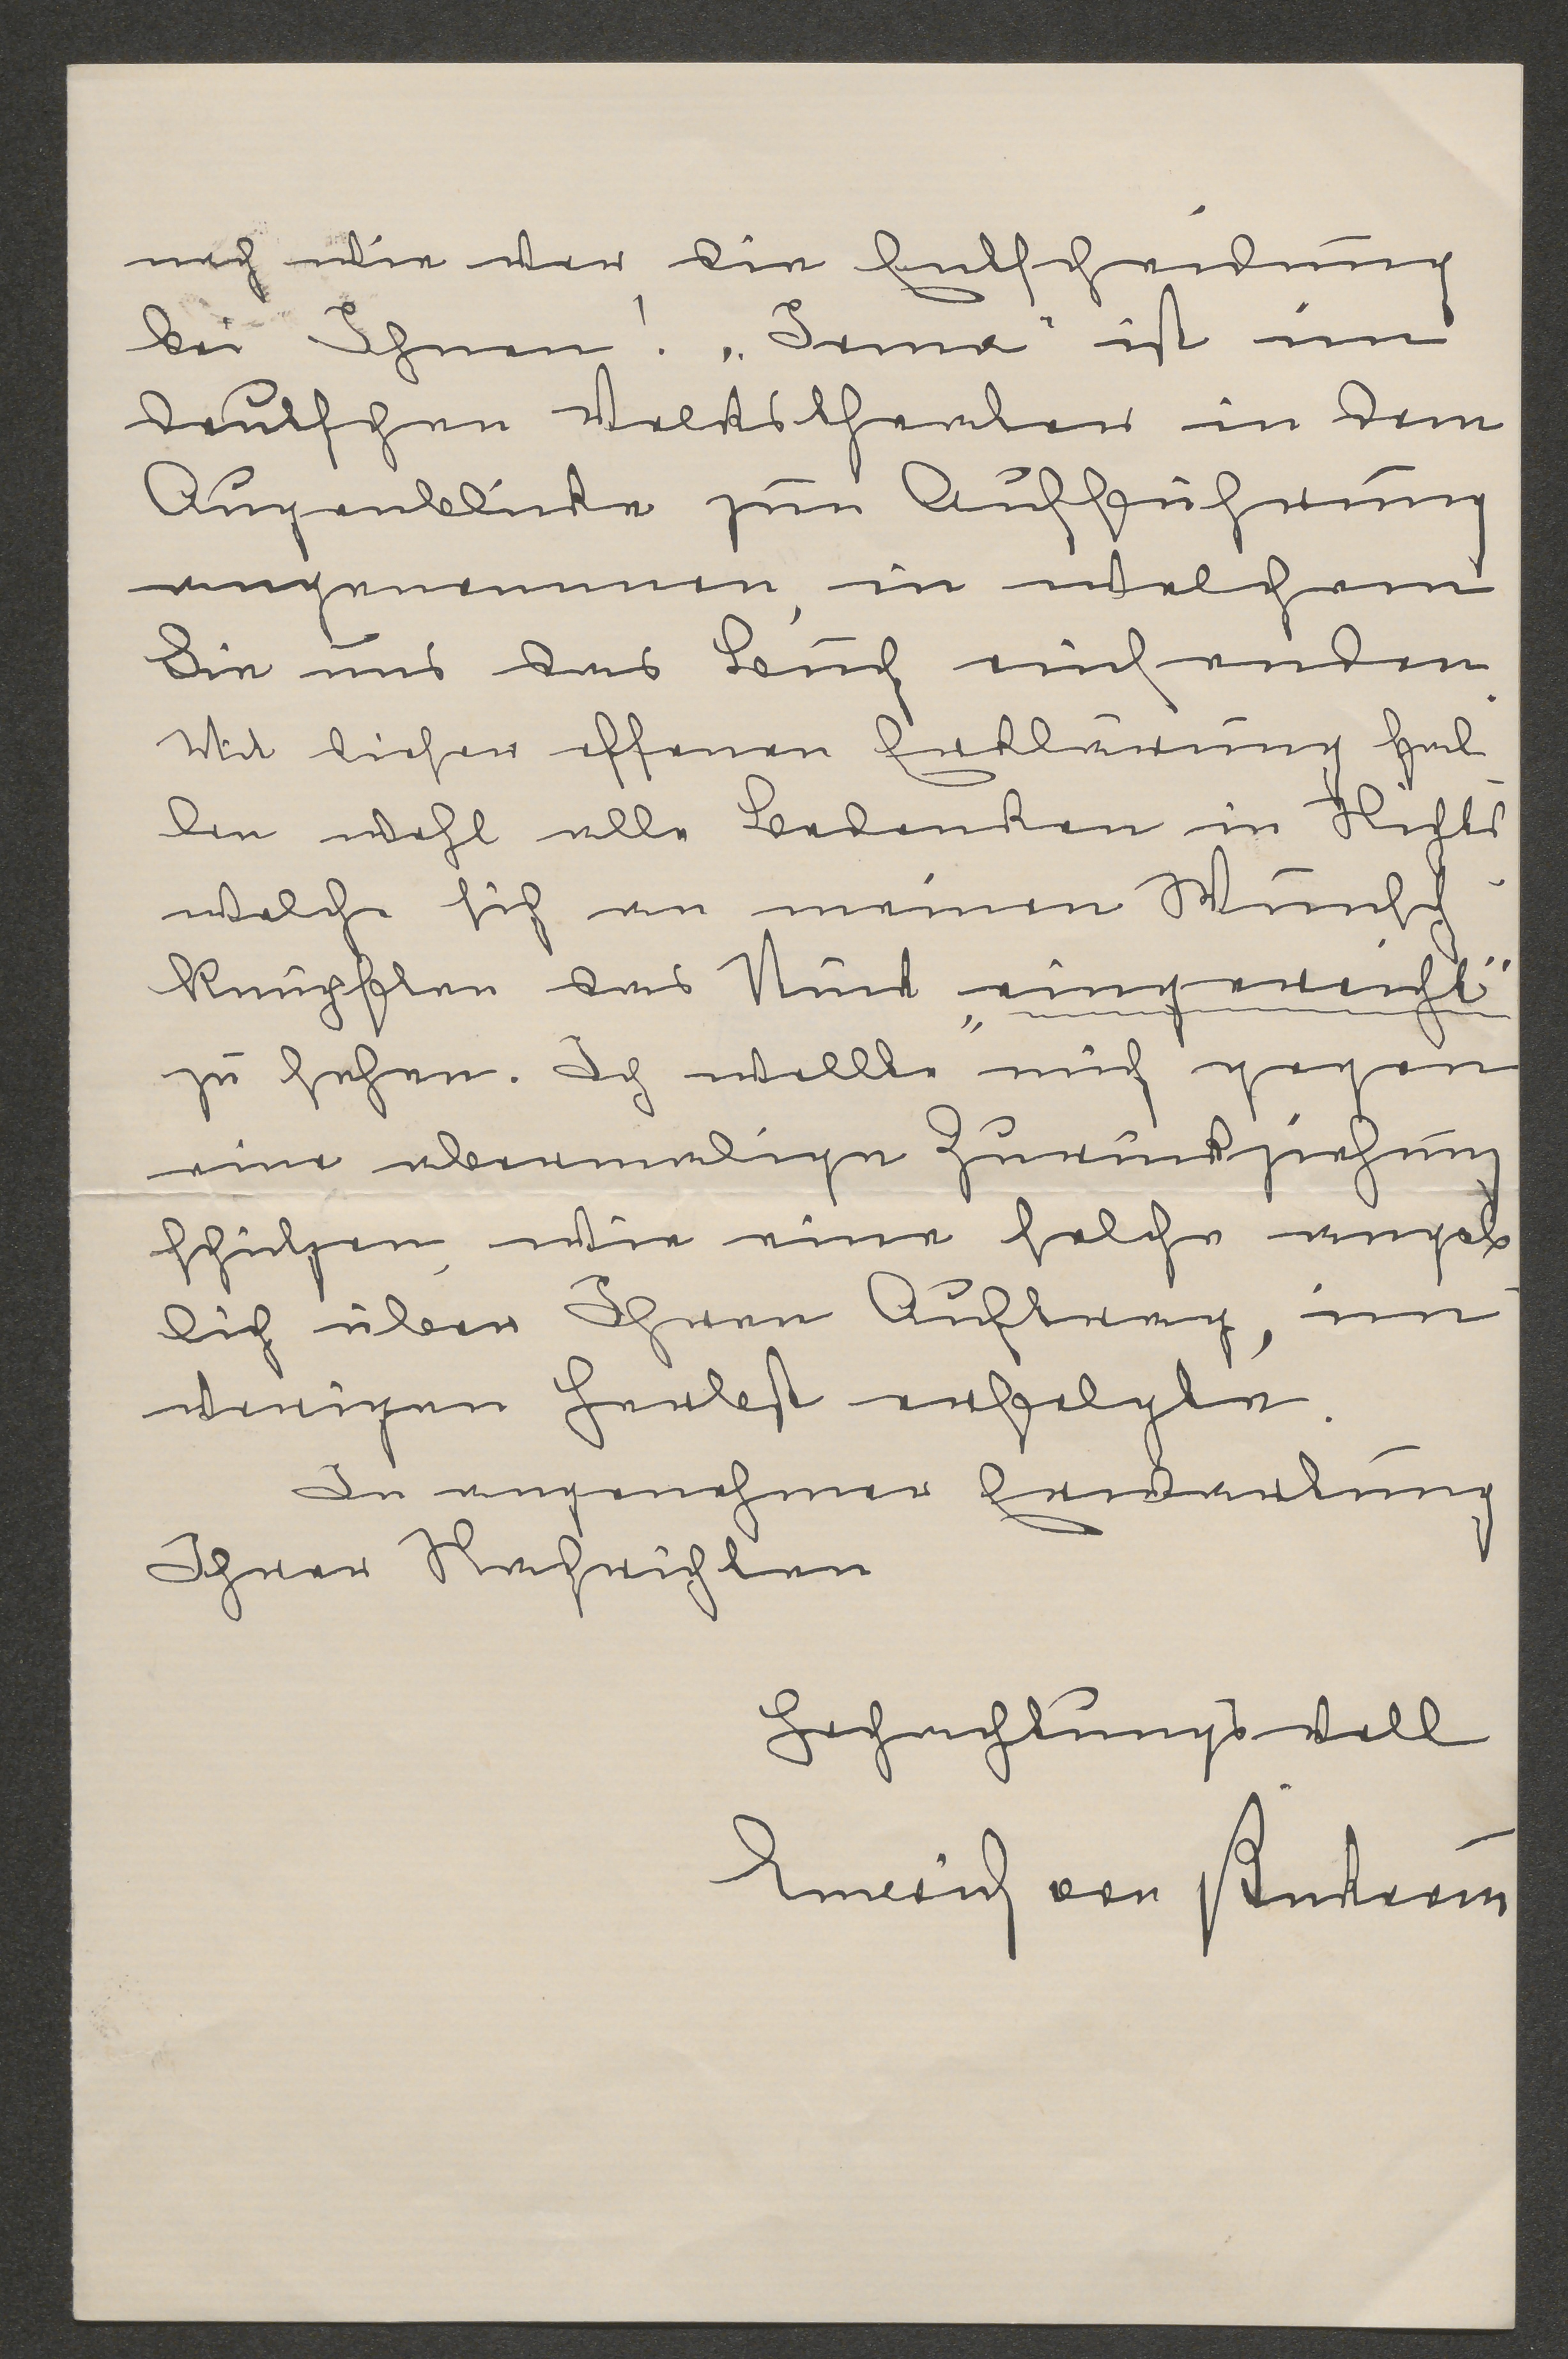 nach wie vor die Entscheidung
bei Ihnen! „Irma“ ist im
deutschen Volkstheater in dem
Augenblicke zur Aufführung
angenommen, in welchem
Sie uns das Buch einsenden.
Mit dieser offenen Erklärung fal¬
len wohl alle Bedenken in Nichts
welche sich an meinen Wunsch
knüpften das Stück „eingereicht“
zu sehen. Ich wollte mich gegen
eine abermalige Zurückziehung
schützen, wie eine solche angeb¬
lich über Ihren Auftrag, im
vorigen Herbst erfolgte.
In angenehmer Erwartung
Ihrer Nachrichten
Hochachtungsvoll
Emerich von Bukovics